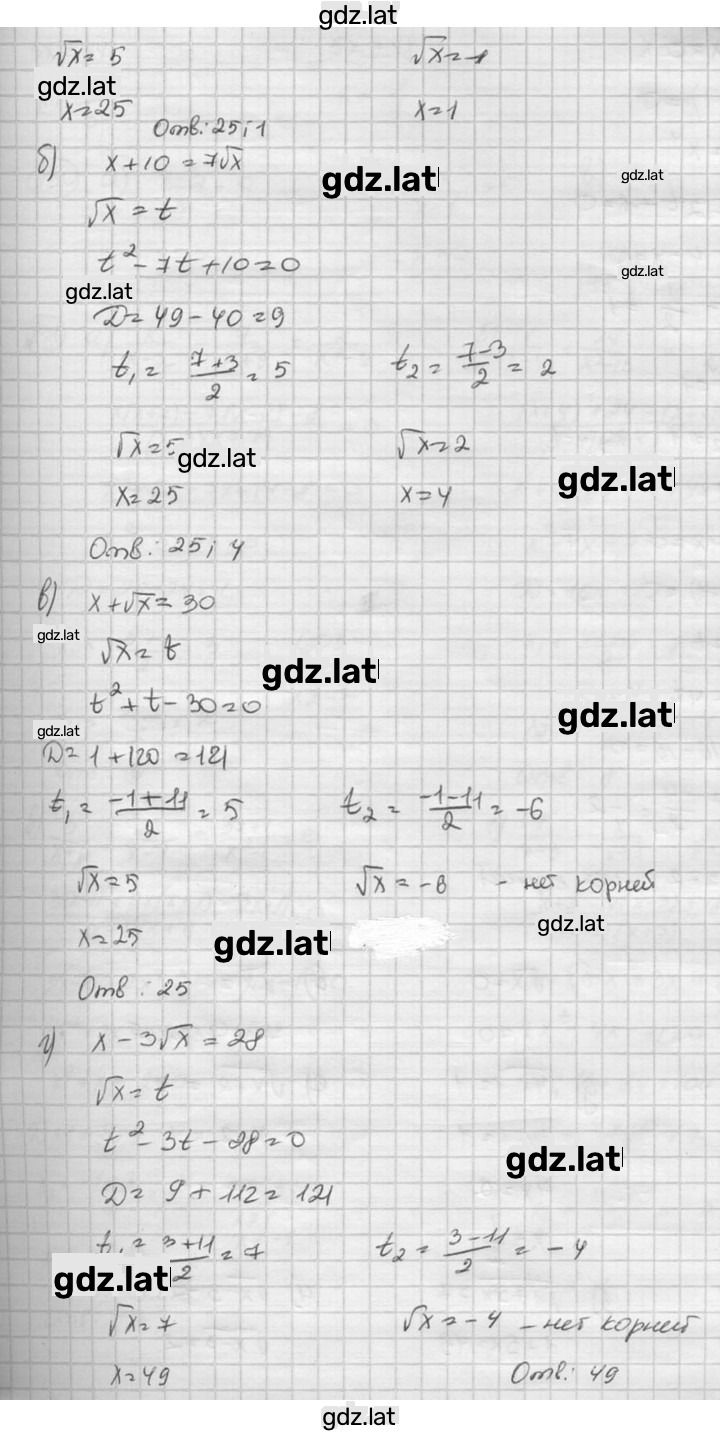 gdz.lat
√x = 5 √x = 1
gdz.lat
x = 25 x = 1
Отв: 25; 1
б) x + 10 = 7√x
gdz.lat gdz.lat
√x = t
t² - 7t + 10 = 0
gdz.lat
gdz.lat
D = 49 - 40 = 9
t₁ = (7+3)/2 = 5 t₂ = (7-3)/2 = 2
√x = 5 √x = 2
gdz.lat
gdz.lat
x = 25 x = 4
Отв: 25; 4
в) x + √x = 30
gdz.lat
√x = t
gdz.lat
t² + t - 30 = 0
gdz.lat
gdz.lat
D = 1 + 120 = 121
t₁ = (-1+11)/2 = 5 t₂ = (-1-11)/2 = -6
√x = 5 √x = -6 - нет корней
gdz.lat
x = 25
gdz.lat
Отв: 25
г) x - 3√x = 28
√x = t
t² - 3t - 28 = 0
gdz.lat
D = 9 + 112 = 121
t₁ = (3+11)/2 = 7 t₂ = (3-11)/2 = -4
gdz.lat
√x = 7 √x = -4 - нет корней
x = 49 Отв: 49
gdz.lat